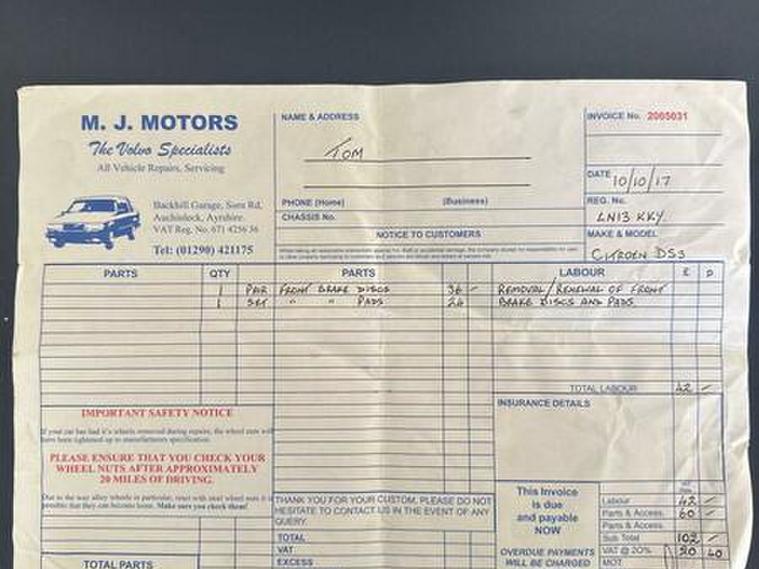 M. J. MOTORS
The Volvo Specialists
All Vehicle Repairs, Servicing
Backhill Garage, Sorn Rd,
Auchinleck, Ayrshire.
VAT Reg. No. 671 4256 36
Tel: (01290) 421175
NAME & ADDRESS
TOM
PHONE (Home) (Business)
CHASSIS No.
NOTICE TO CUSTOMERS
INVOICE No. 2005031
DATE 10/10/17
REG. No.
LN13 KKY
MAKE & MODEL
CITROEN DS3
PARTS QTY PARTS LABOUR £ P
1 PAIR FRONT BRAKE DISCS 36 - REMOVAL/RENEWAL OF FRONT
1 SET " " PADS 24 BRAKE DISCS AND PADS
TOTAL LABOUR 42 -
IMPORTANT SAFETY NOTICE
If your car has had it's wheels removed during repairs, the wheel nuts will
have been tightened up to manufacturers specification.
PLEASE ENSURE THAT YOU CHECK YOUR
WHEEL NUTS AFTER APPROXIMATELY
20 MILES OF DRIVING.
Due to the way alloy wheels in particular, react with steel wheel nuts it is
possible that they can become loose. Make sure you check them!
TOTAL PARTS
THANK YOU FOR YOUR CUSTOM, PLEASE DO NOT
HESITATE TO CONTACT US IN THE EVENT OF ANY
QUERY.
TOTAL
VAT
EXCESS
INSURANCE DETAILS
This Invoice
is due
and payable
NOW
OVERDUE PAYMENTS
WILL BE CHARGED
Labour 42 -
Parts & Access. 60 -
Parts & Access.
Sub Total 102 -
VAT @ 20% 20 40
MOT